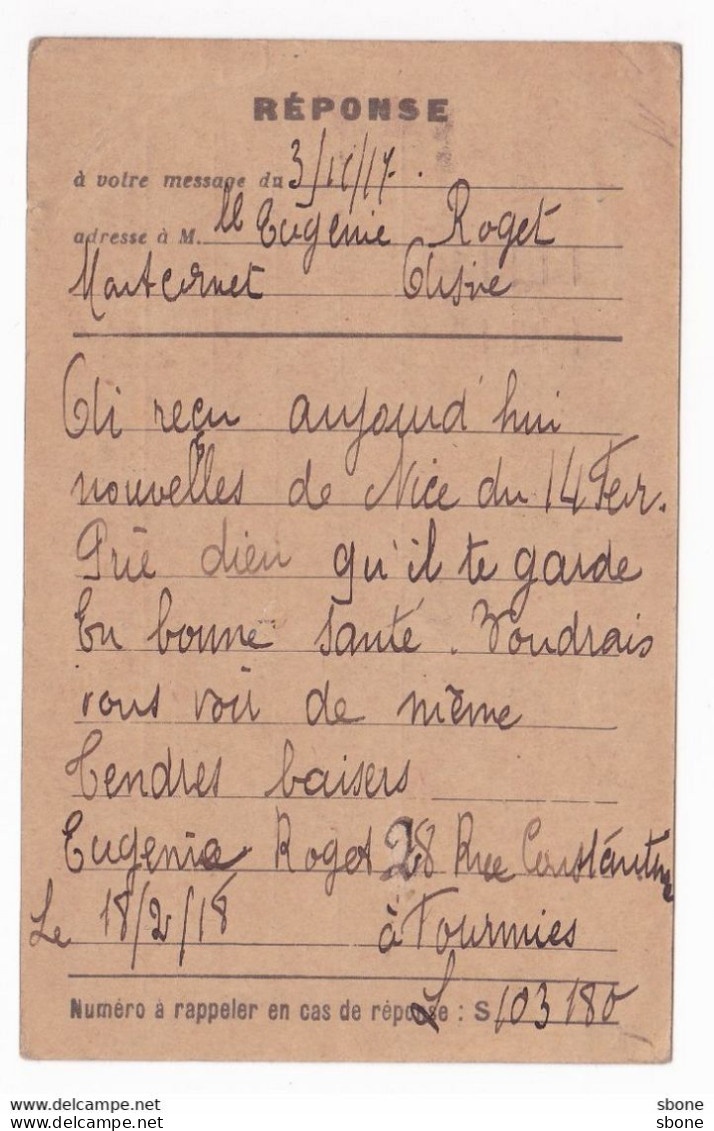 RÉPONSE
à votre message du 3/11/17.
adresse à M. lle Eugénie Roget
Montcornet Aisne
Ai reçu aujourd'hui
nouvelles de Nice du 14 Fev.
Prie dieu qu'il te garde
En bonne santé. Voudrais
vous voir de même
Tendres baisers
Eugenie Roget 28 Rue Constantine
Le 18/2/18 à Fourmies
Numéro à rappeler en cas de réponse : S 103180
sbone
sbone
sbone
sbone